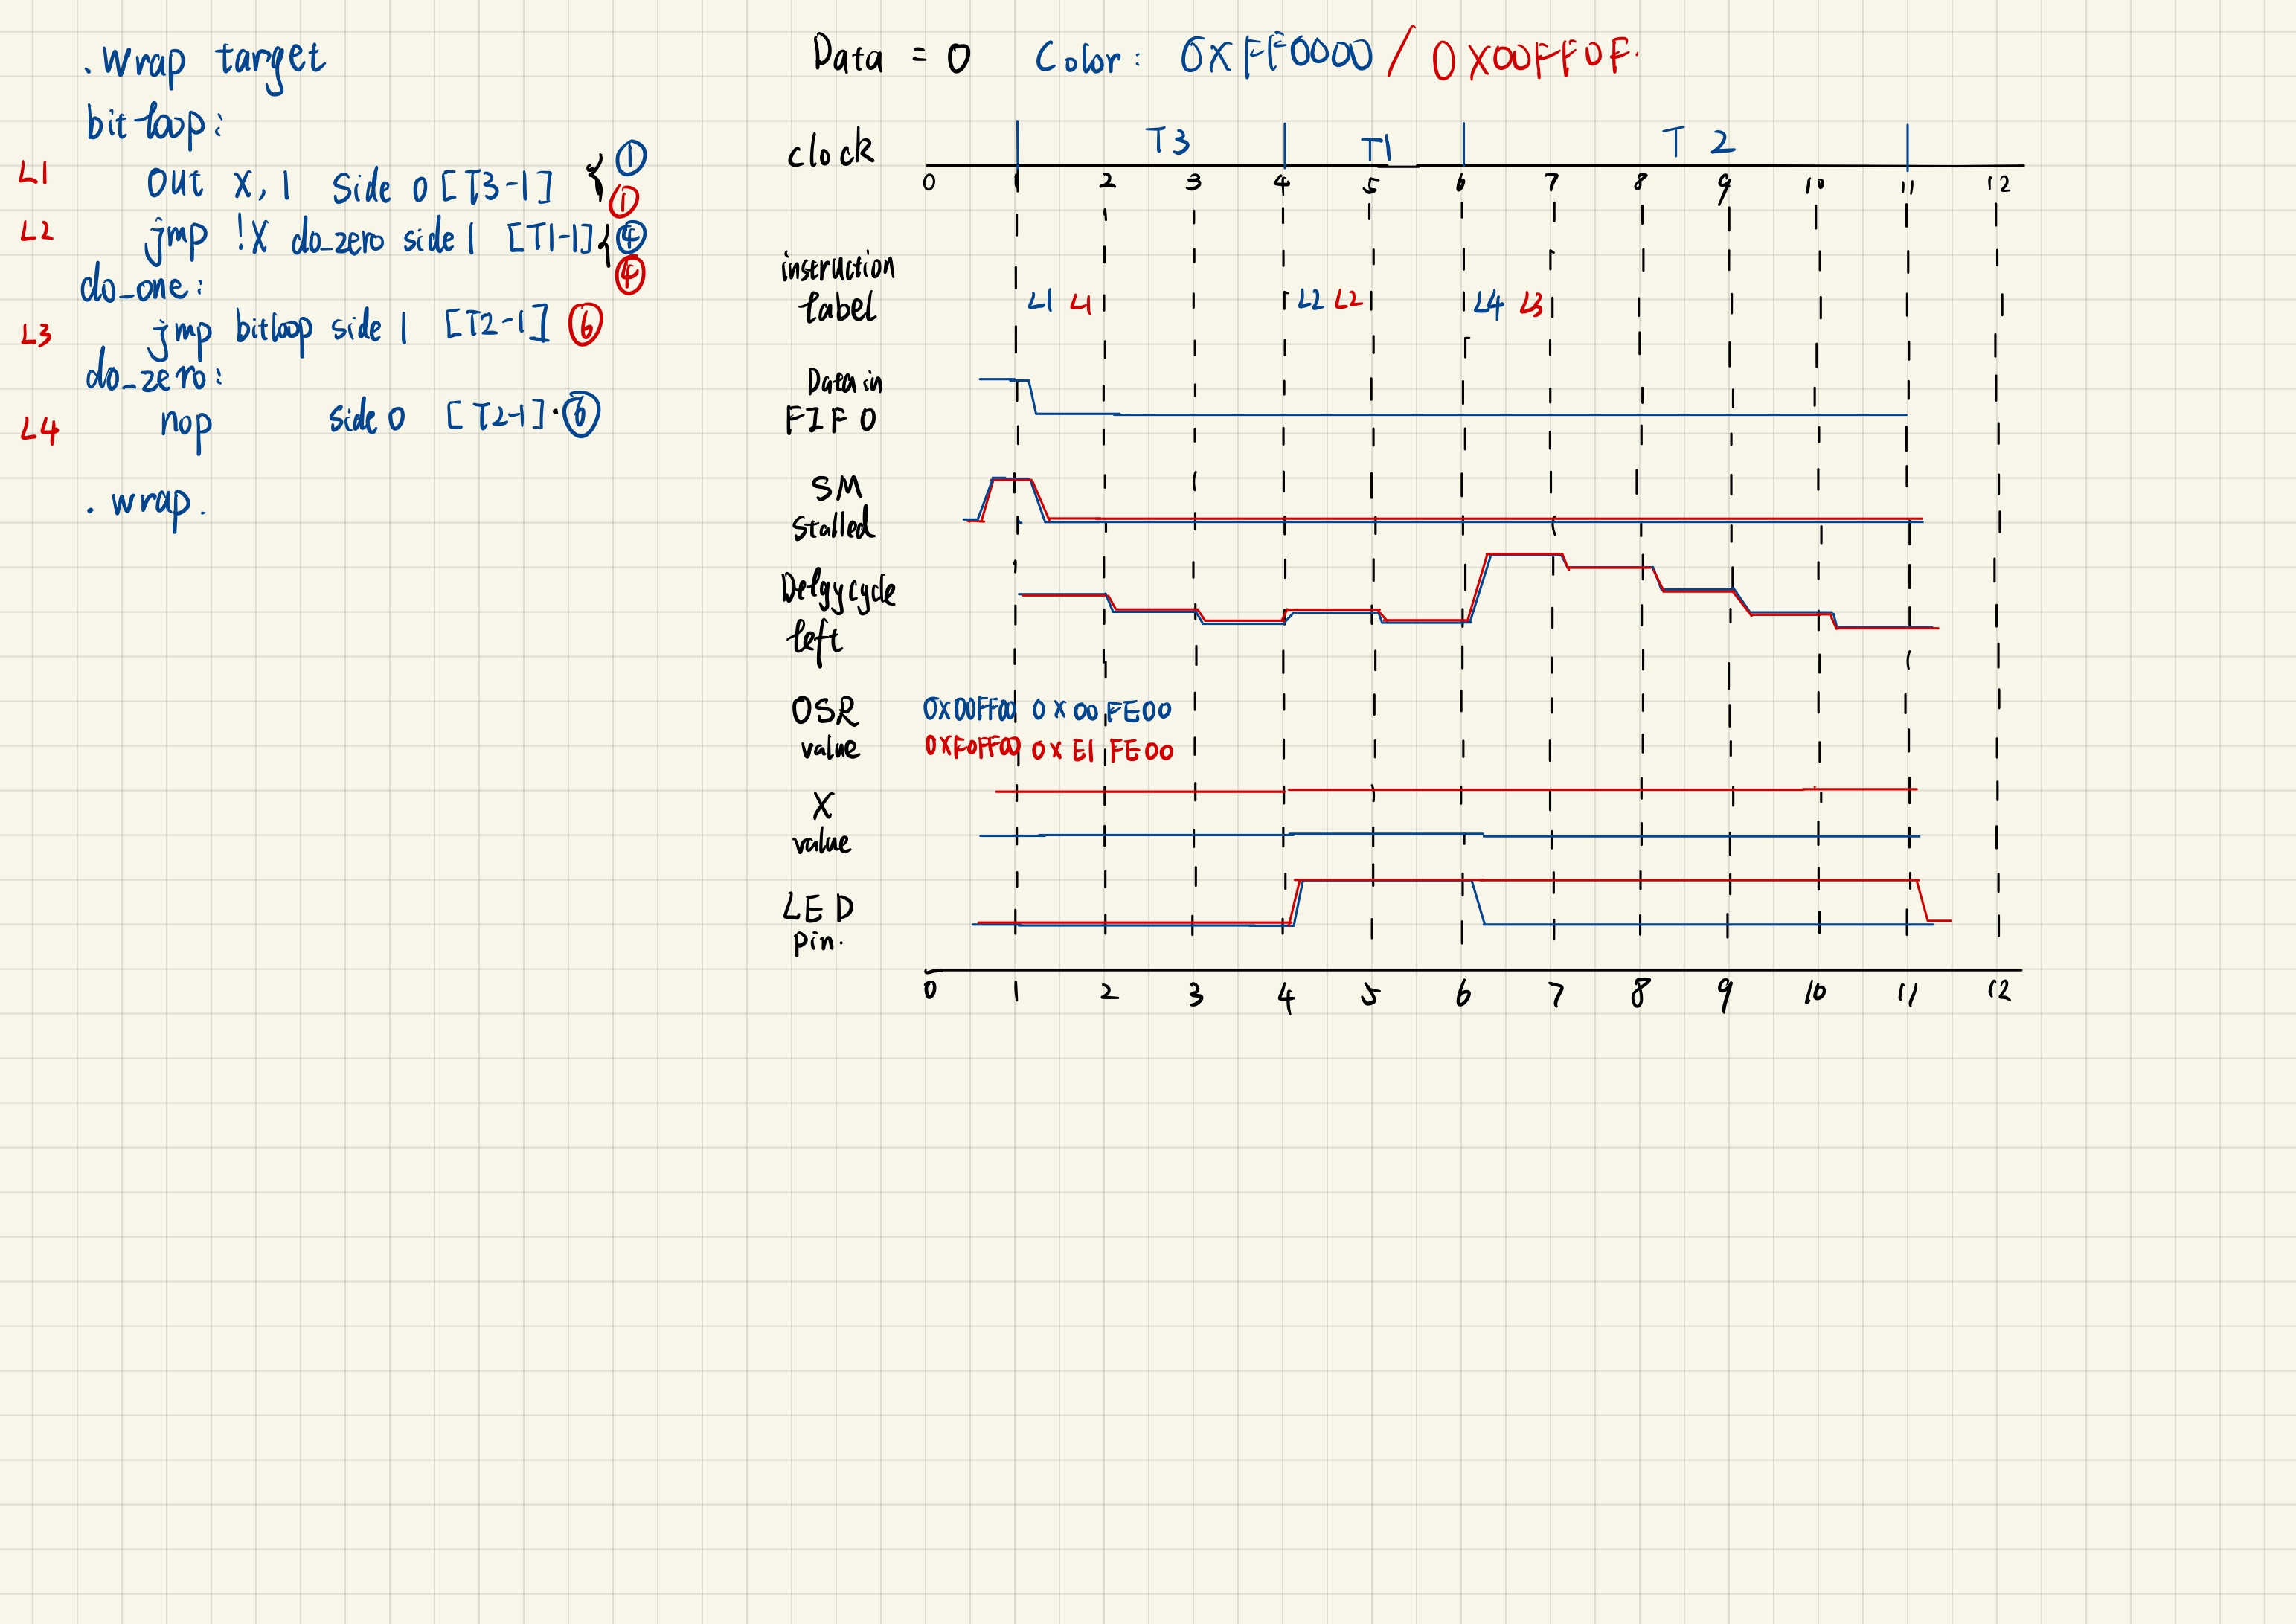 .wrap target
bitloop:
L1 out x, 1 side 0 [T3-1] { ① ①
L2 jmp !X do_zero side 1 [T1-1] { ④ ④
do_one:
L3 jmp bitloop side 1 [T2-1] ⑥
do_zero:
L4 nop side 0 [T2-1]. ⑥
.wrap.
Data = 0 Color: 0XFF0000 / 0X00FF0F.
clock T3 T1 T2
0 1 2 3 4 5 6 7 8 9 10 11 12
instruction
label L1 L1 L2 L2 L4 L3
Data in
FIFO
SM
Stalled
Delay cycle
left
OSR 0X00FF00 0X00FE00
value 0XF0FF00 0XE1FE00
X
value
LED
pin.
0 1 2 3 4 5 6 7 8 9 10 11 12